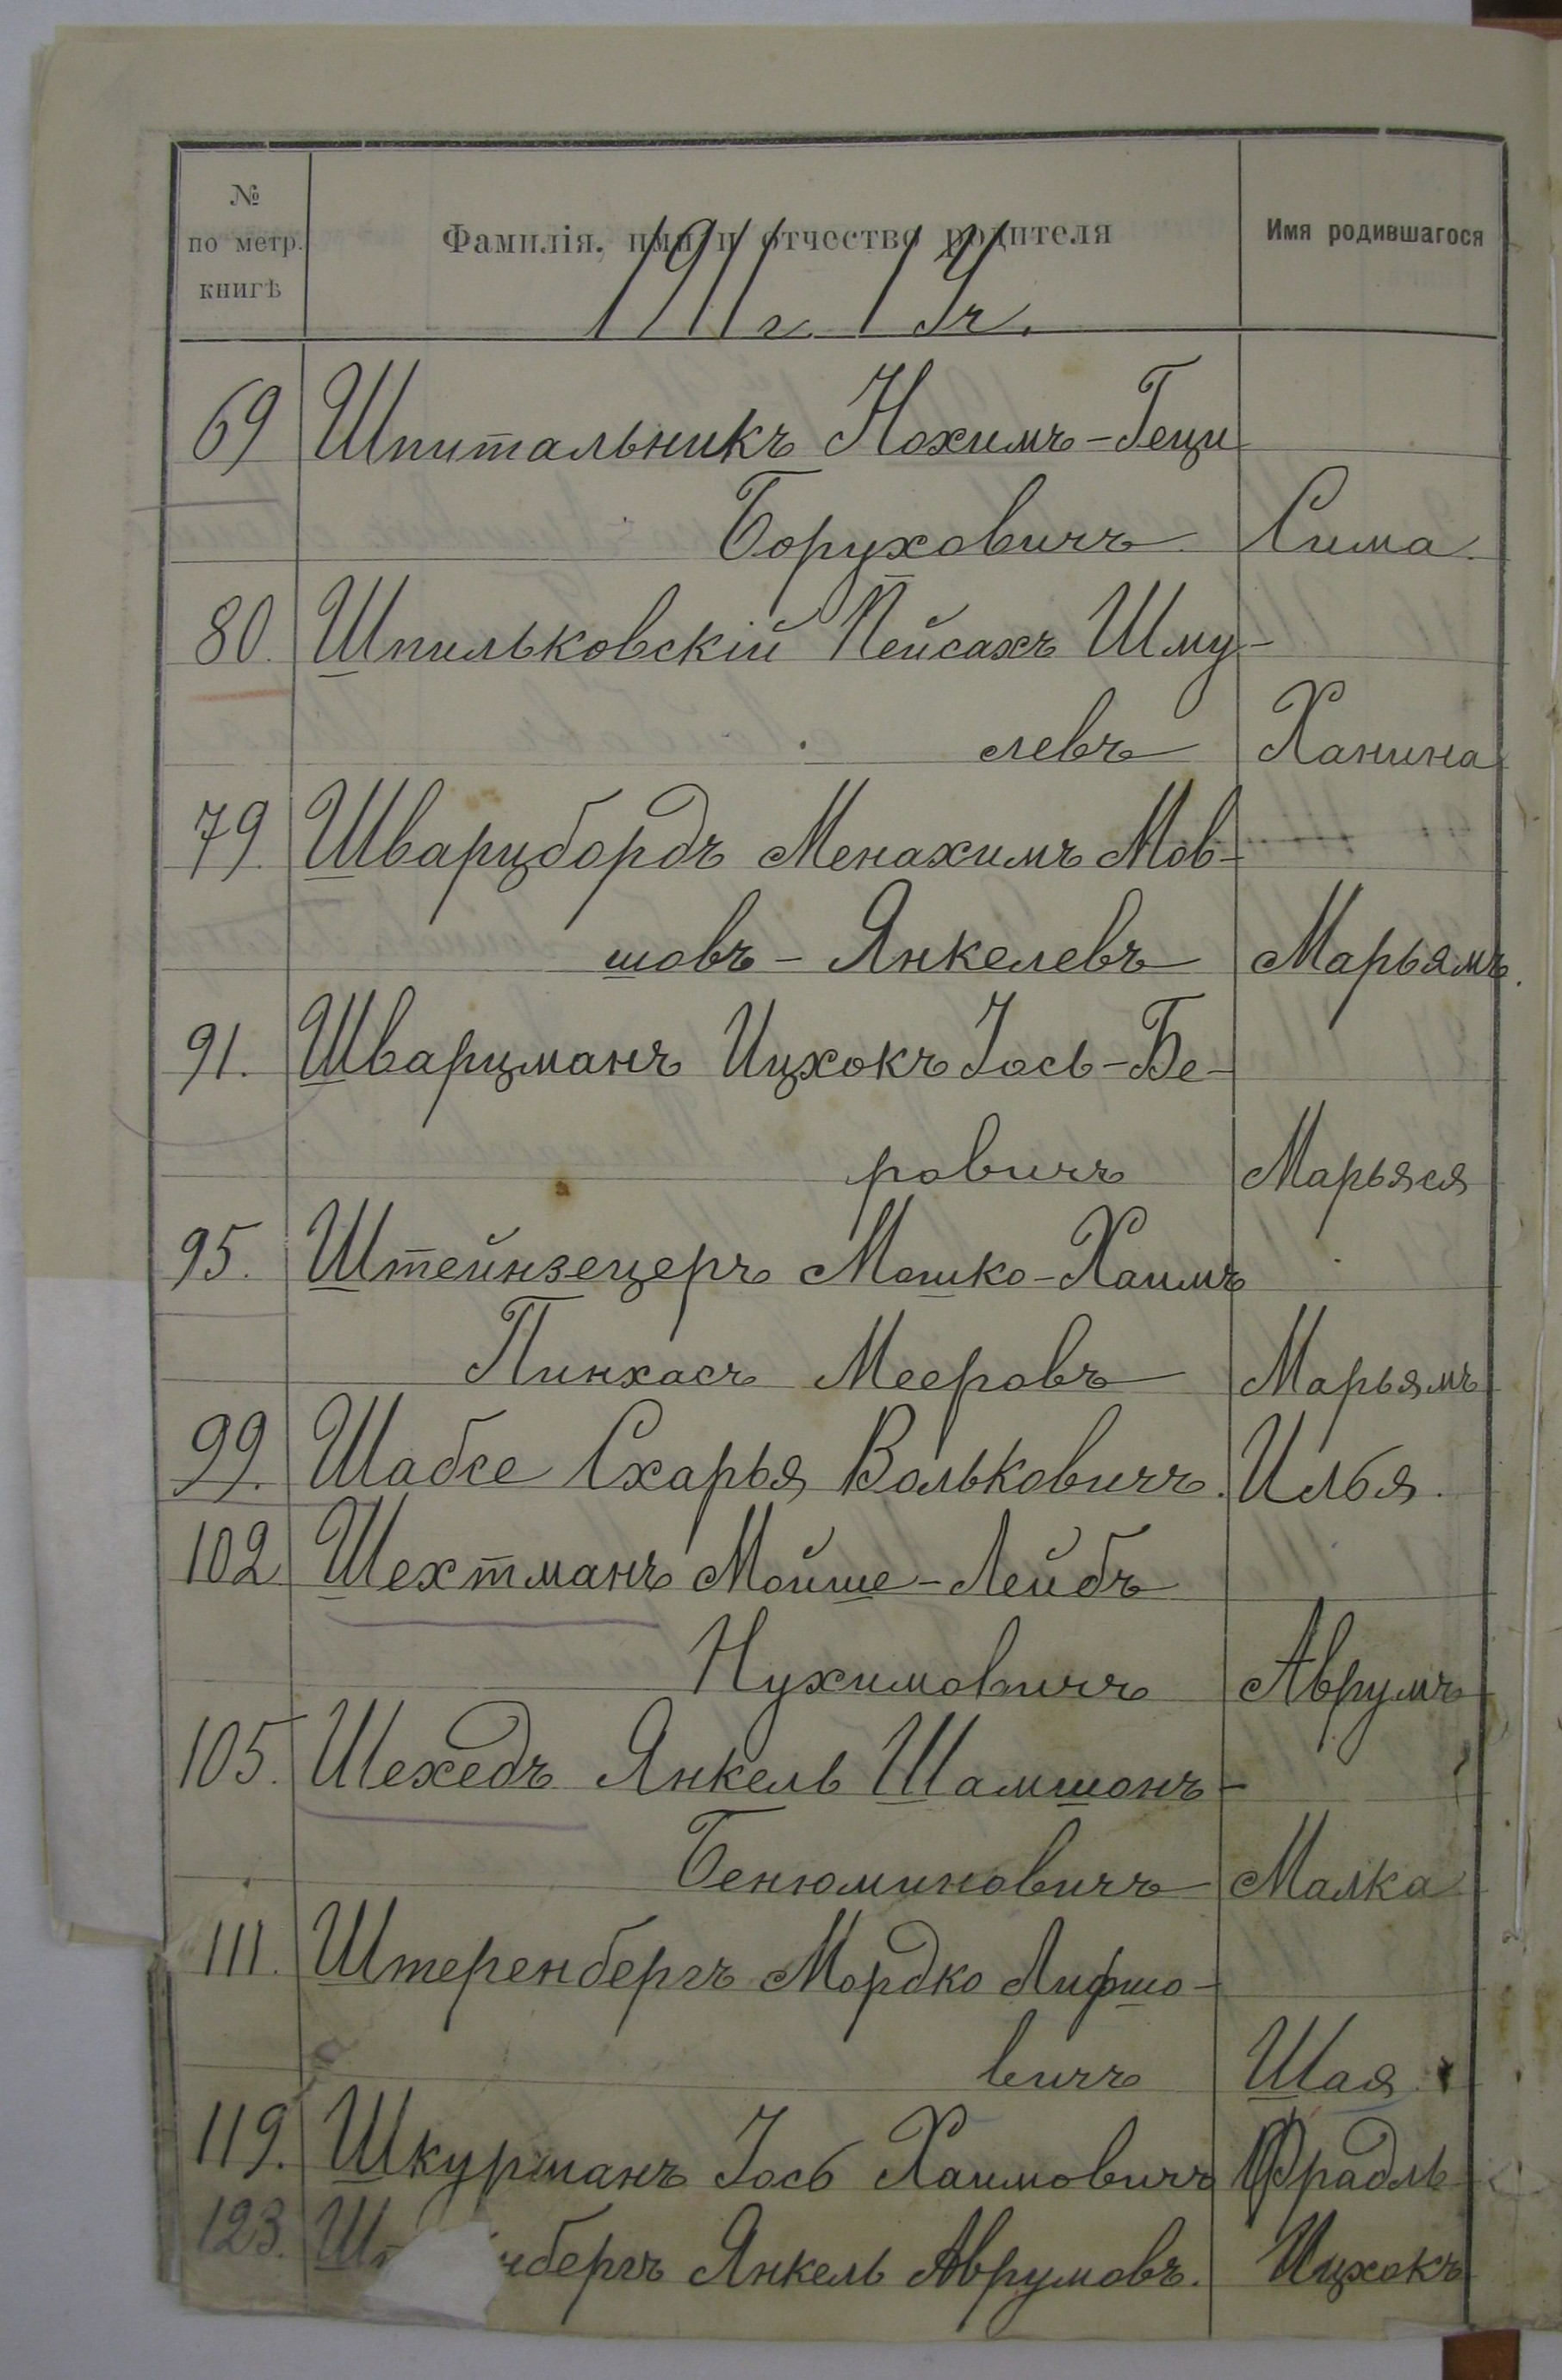 №
по метр.
книгѣ
Фамилія, имя и отчество родителя
Имя родившагося
1911 г. 1 Ч.
69 Шпитальникъ Нохимъ-Геци
Боруховичъ Сима.
80. Шпильковскій Пейсахъ Шму-
левъ Ханина
79. Шварцбордъ Менахимъ Мов-
шовъ - Янкелевъ Марьямъ.
91. Шварцманъ Ицхокъ Іось-Бе-
ровичъ Марьяся
95. Штейнзецеръ Мошко-Хаимъ
Пинхасъ Мееровъ Марьямъ
99. Шабсе Схарья Вольковичъ. Илья.
102 Шехтманъ Мойше-Лейбъ
Нухимовичъ Аврумъ
105. Шехедъ Янкель Шамшонъ-
Бенюминовичъ Малка
111. Штеренбергъ Мордко Лифшо-
вичъ Шая
119. Шкурманъ Іось Хаимовичъ Фрадль
123. Шт нбергъ Янкель Аврумовъ. Ицхокъ